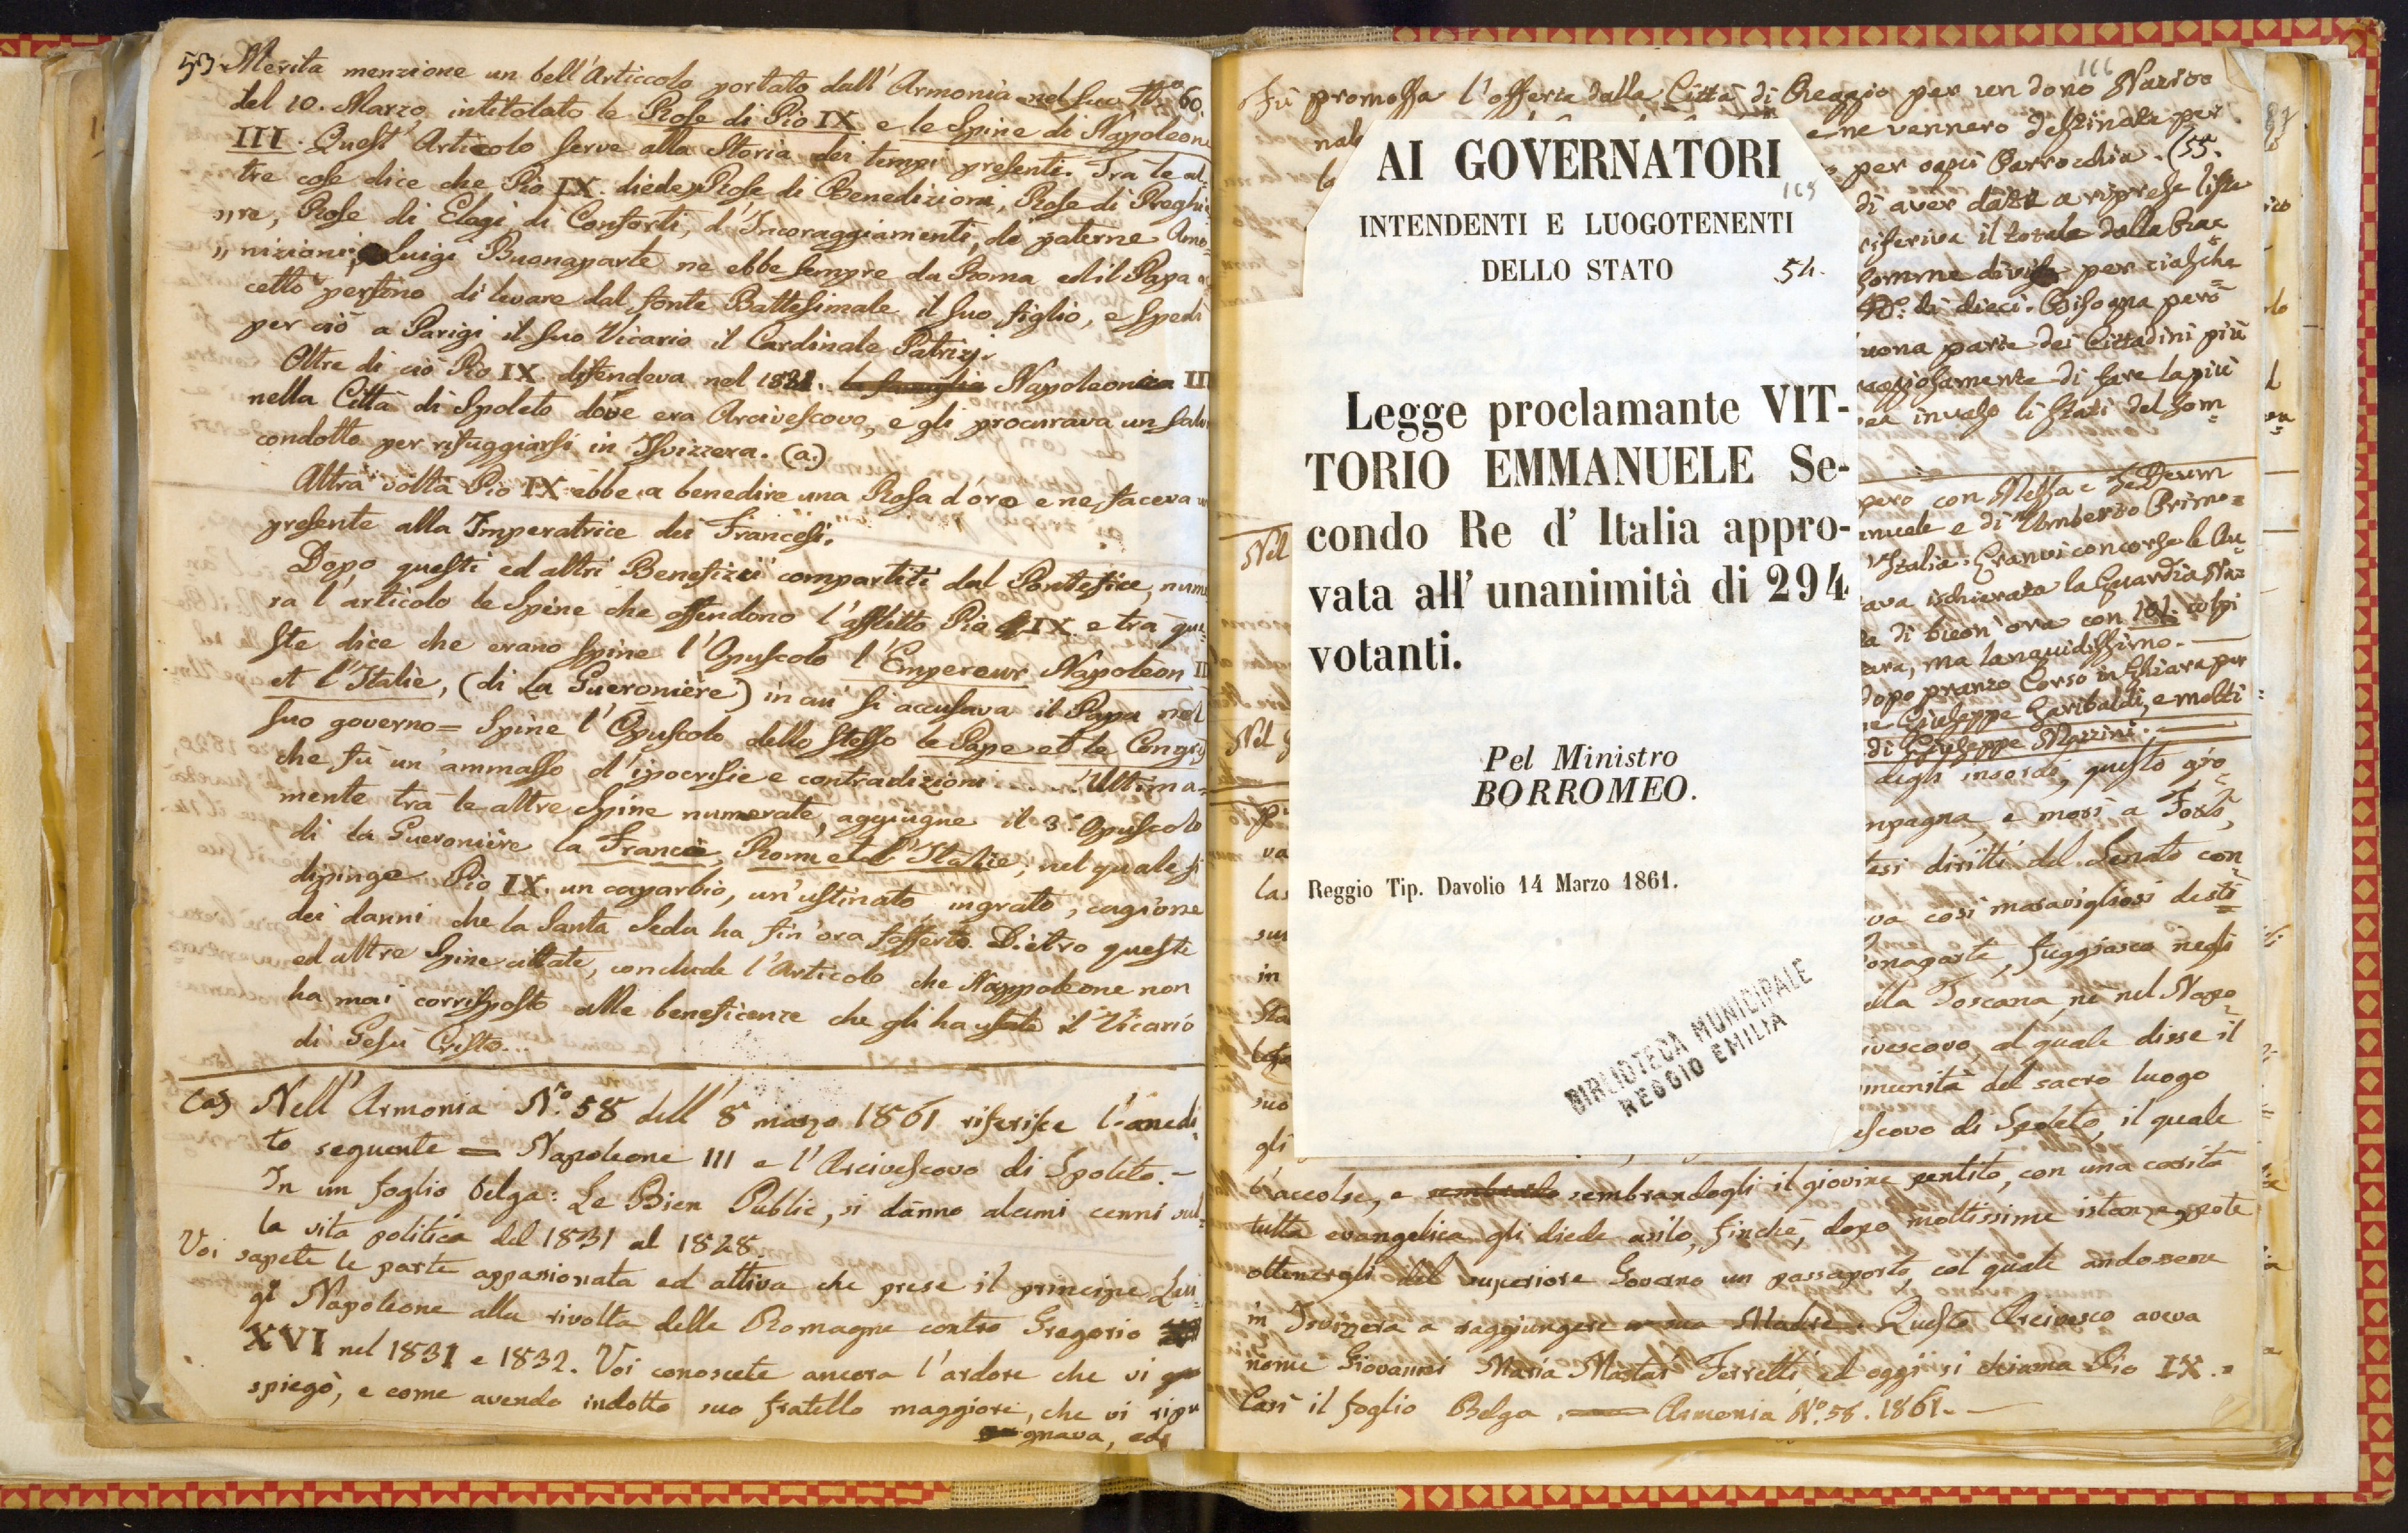 53. Merita menzione un bell'Articcolo portato dall'Armonia nel suo N.º 60.
del 10. Marzo intitolato le Rose di Pio IX e le Spine di Napoleone
III. Quest'Articolo serve alla Storia dei tempi presenti. Tra le al-
tre cose dice che Pio IX. diede „Rose di Benedizioni, Rose di Preghie-
„re, Rose di Elogi di Conforti, d'Incoraggiamenti, di paterne Amo-
„nizioni; Luigi Buonaparte ne ebbe sempre da Roma ed il Papa ac
cettò persino di levare dal fonte Battesimale il suo figlio, e spedì
per ciò a Parigi il suo Vicario il Cardinale Patrizj.
Oltre di ciò Pio IX difendeva nel 1831. la famiglia Napoleonica III
nella Città di Spoleto dove era Arcivescovo, e gli procurava un salvo
condotto per rifuggiarsi in Isvizzera. (a.)
Altra volta Pio IX ebbe a benedire una Rosa d'oro e ne faceva un
presente alla Imperatrice dei Francesi.
Dopo questi ed altri Benefizii compartiti dal Pontefice, nume
ra l'articolo le Spine che offendono l'afflitto Pio IX. e tra que-
ste dice che erano spine l'Opuscolo l'Empereur Napoleon III
et l'Italie, (di La Gueronière) in cui si accusava il Papa nel
suo governo = Spine l'Opuscolo dello stesso le Pape et le Congrés
che fù un'ammasso d'ipocrisie e contradizioni ..... Ultima-
mente tra le altre Spine numerate, aggiugne il 3.º Opuscolo
di la Gueronière la France, Rome et l'Italie; nel quale si
dipinge Pio IX. un caparbio, un'ustinato, ingrato, cagione
dei danni che la Santa Sede ha fin'ora sofferto. Dietro queste
ed altre Spine cittate, conclude l'Articolo che Nappoleone non
ha mai corrisposto alle beneficenze che gli ha usate il Vicario
di Gesù Cristo...
(a) Nell'Armonia N.º 58 dell'8 marzo 1861 riferisce l'anedo-
to seguente = Napoleone III e l'Arcivescovo di Spoleto. -
In un foglio belga: Le Bien Public, si dànno alcuni cenni sul-
la vita politica del 1831 al 1828.
Voi sapete le parte appasionata ed attiva che prese il principe Lui-
gi Napoleone alla rivolta delle Romagne contro Gregorio
XVI nel 1831 e 1832. Voi conoscete ancora l'ardore che vi
spiegò, e come avendo indotto suo fratello maggiore, che vi ripu
gnava, ed
166
Fù promossa l'offerta dalla Città di Reggio per un dono Nazio
nale e ne vennero destinate per
per ogni Parrocchia. (55.
di aver date a riprese liste
riferiva il totale dalla
somme divise per ciasche
N.º di dieci. Bisogna però
buona parte dei Cittadini più
di fare la più
invaso li stati del Som-
con Messa e TeDeum
e di Umberto Primo=
Italia. Eranvi concorse le Au-
ischierata la Guardia Naz
di buon'ora con 101. colpi
ma languidissimo.
dopo pranzo Corso in Ghiara per
Giuseppe Garibaldi, e molti
di Giuseppe Mazzini.
degli insorti, questo gio-
e morì a Forlì,
diritti del Senato con
così maravigliosi desti-
fuggiasco negli
Toscana, nè nel Napo-
al quale disse il
del sacro luogo
di Spoleto, il quale
AI GOVERNATORI
165
INTENDENTI E LUOGOTENENTI
DELLO STATO
54.
Legge proclamante VIT-
TORIO EMMANUELE Se-
condo Re d' Italia appro-
vata all' unanimità di 294
votanti.
Pel Ministro
BORROMEO.
Reggio Tip. Davolio 14 Marzo 1861.
BIBLIOTECA MUNICIPALE
REGGIO EMILIA
l'accolse, e sembrandogli il giovine pentito, con una carità
tutta evangelica gli diede asilo, finchè, dopo moltissime istanze potè
ottenergli dal superiore Governo un passaporto, col quale andossene
in Isvizzera a raggiungere sua Madre. Questo Arcivesco aveva
nome Giovanni Maria Mastai Ferretti ed oggi si chiama Pio IX. =
Così il foglio Belga. Armonia N.º 58. 1861. -